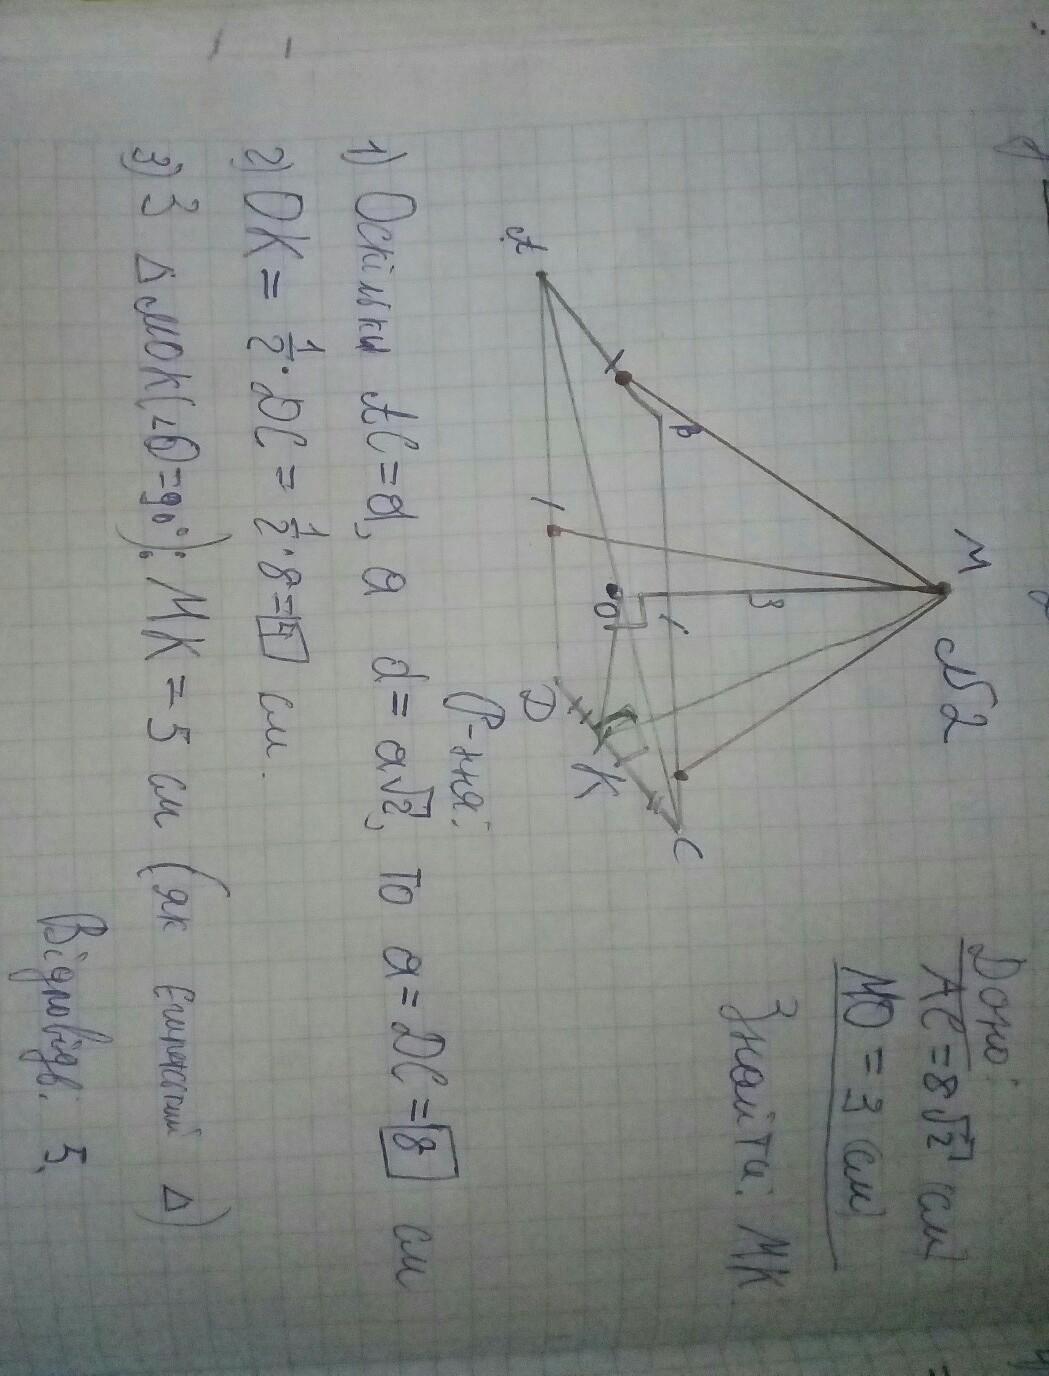 №2
M
Дано:
AC = 8√2 см
MO = 3 см
Знайти: MK
3
B
O
A
D
K
C
Р-ння:
1) Оскільки AC = d, а d = a√2, то a = DC = 8 см
2) OK = 1/2 · DC = 1/2 · 8 = 4 см.
3) З △MOK (∠O = 90°): MK = 5 см (як Єгипетський △)
Відповідь: 5.